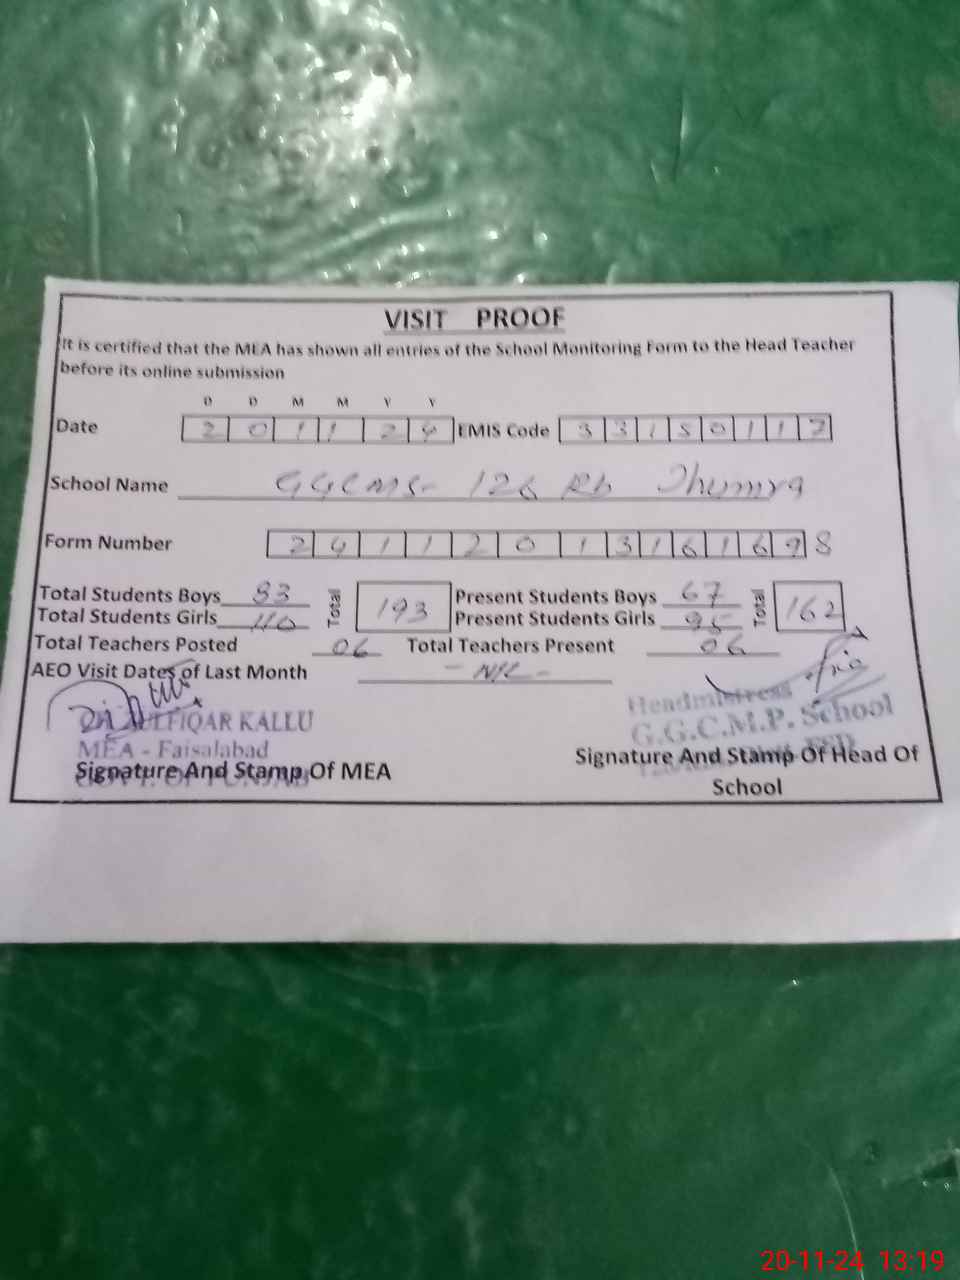 VISIT PROOF
It is certified that the MEA has shown all entries of the School Monitoring Form to the Head Teacher
before its online submission
D D M M Y Y
Date 2 0 1 1 2 4 EMIS Code 3 3 1 5 0 1 1 7
School Name GGCMS- 126 Rb Jhumra
Form Number 2 4 1 1 2 0 1 3 1 6 1 6 9 8
Total Students Boys 83 Total 193 Present Students Boys 67 Total 162
Total Students Girls 110 Present Students Girls 95
Total Teachers Posted 06 Total Teachers Present 06
AEO Visit Dates of Last Month - NIL -
ZULFIQAR KALLU
MEA - Faisalabad
GOVT. OF PUNJAB
Signature And Stamp Of MEA
Headmistress
G.G.C.M.P. School
FSD
Signature And Stamp Of Head Of
School
20-11-24 13:19